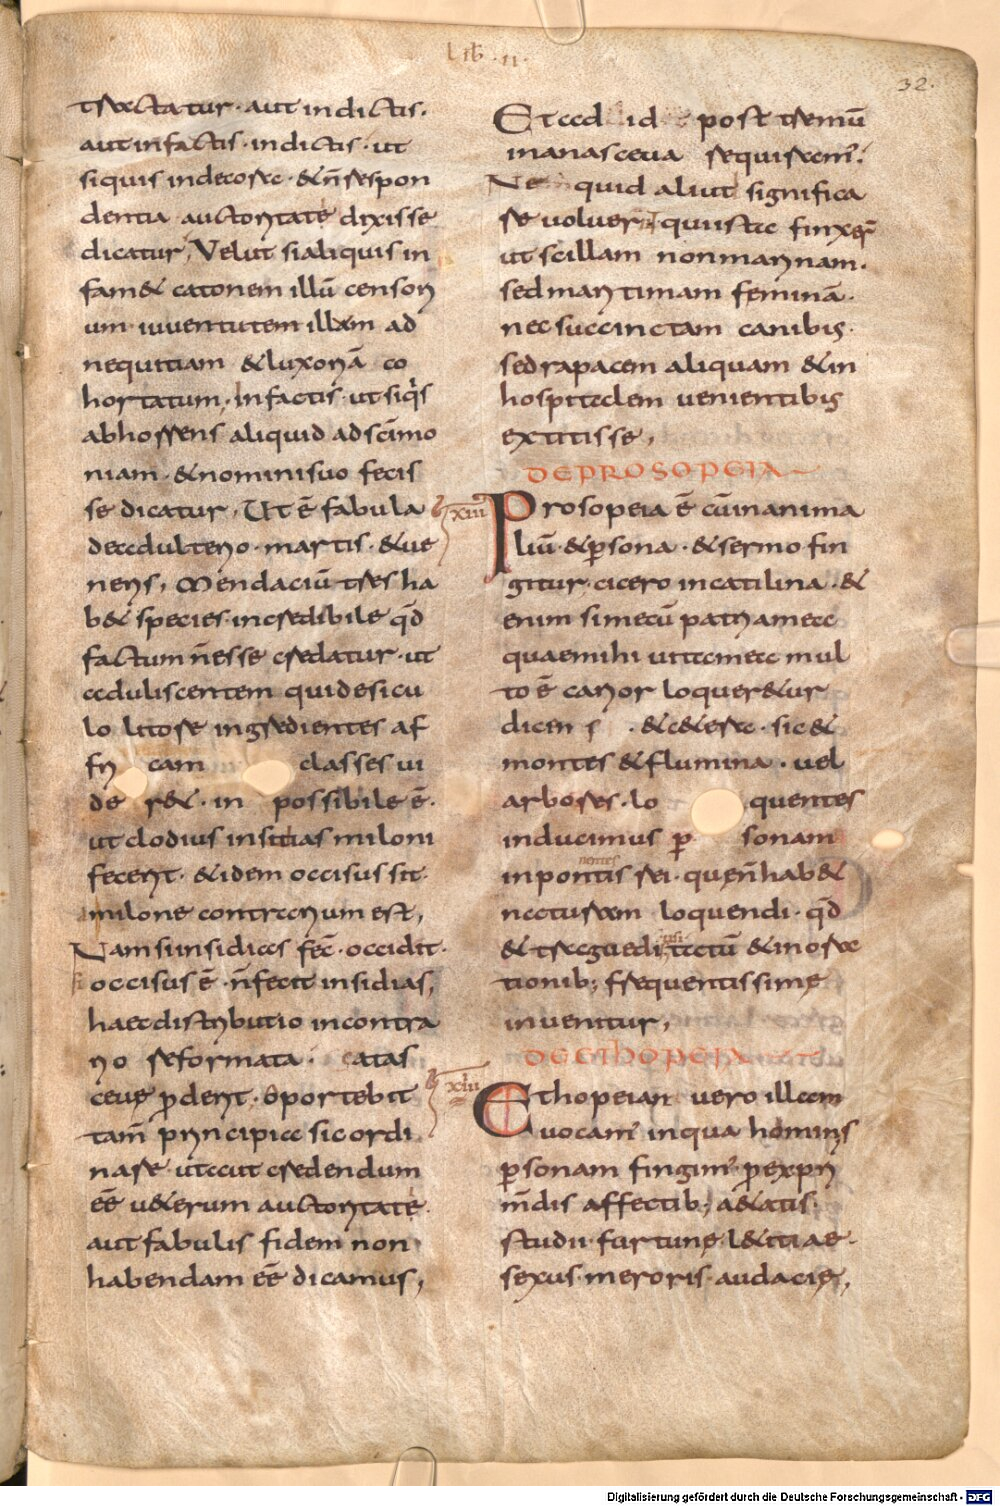 Lib. II.
32.
tractatur. aut in dictis.
aut in factis. in dictis. ut
si quis indecore. & n̄ respon
dentia auctoritate dixisse
dicatur, Velut si aliquis in
fam& catonem illū censori
um iuventutem illam ad
nequitiam & luxoriā co
hortatum, in factis. ut siq̄s
abhorrens aliquid a d scīmo
niam. & nomini suo fecis
se dicatur, Ut ē fabula
de adulterio. martis. & ue
neris, Mendaciū tres ha
b& species. incredibile q̄d
factum n̄ esse credatur. ut
aduliscentem qui de sicu
lo litore ingredientes af
fri cam classes ui
de r&. in possibile ē.
ut clodius insidias miloni
fecerit. & idem occisus sit.
milone contrarium est,
Nam si insidias fec̄. occidit.
occisus ē. n̄ fecit insidias,
haec distributio in contra
rio reformata. atas
ceue p̄derit. Oportebit
tam̄ principia sic ordi
nare. ut aut credendum
eē u&erum auctoritate.
aut fabulis fidem non
habendam eē dicamus,
Et ad id post tremū
inanasceua requiram̄.
Ne quid aliut significa
re voluer qui ista finxer̄
ut scillam non marinam.
sed maritimam feminā.
nec succinctam canibis.
sed rapacem aliquam & in
hospitalem venientibis
extitisse,
DE PROSOPEIA
xiii Prosopeia ē cū inanima
liū. & p̄sona. & sermo fin
gitur. cicero in catilina. &
enim si mecū patria mea
quae mihi vita mea mul
to ē carior loquer&ur
dicens . & c&era. sic &
montes & flumina. vel
arbores. lo quentes
inducimus p̄ sonam
inponentes rei. quę n̄ hab&
naturam loquendi. q̄d
& tragoedi usitatū & in ora
tionib; frequentissime
invenitur,
DE ETHOPEIA
xiiii Ethopeian vero illam
vocam̄ in qua hominis
p̄sonam fingim̄ p̄ expri
m̄dis affectib; a&atis.
studii. furtunę. l&itiae.
sexus. meroris. audacię,
Digitalisierung gefördert durch die Deutsche Forschungsgemeinschaft - DFG